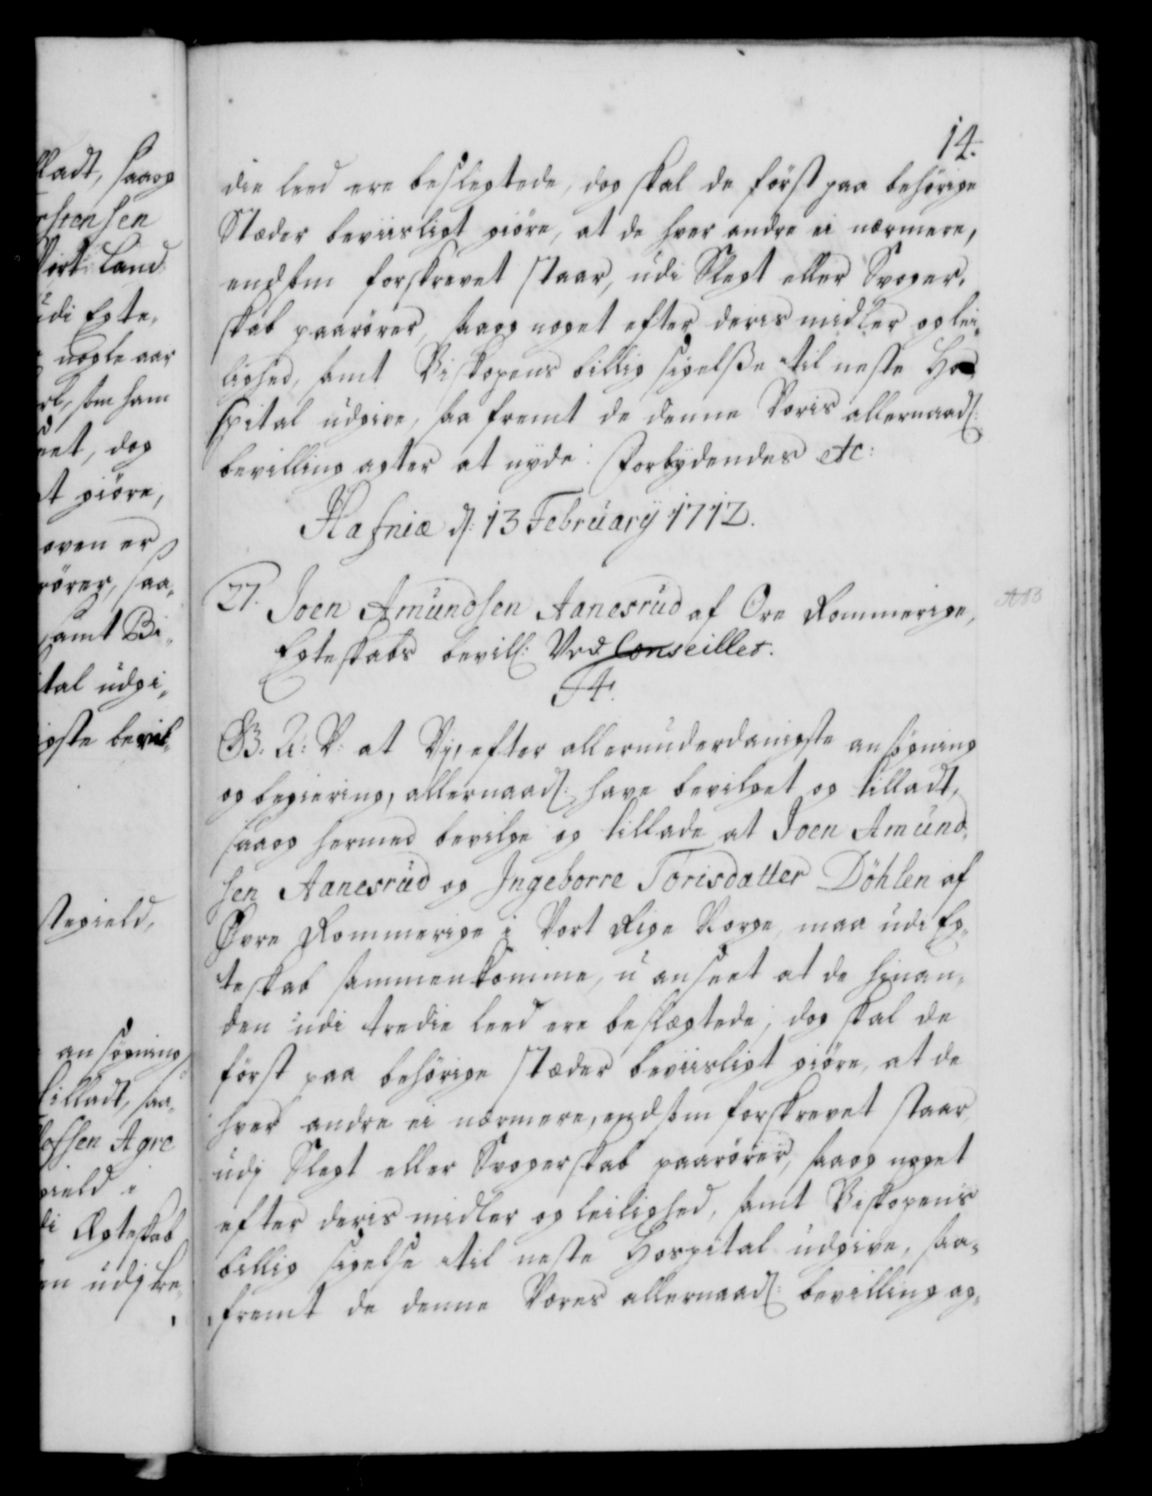 14.
die leed ere beslegtede, dog skal de först paa behörige
Stæder beviisligt giöre, at de hver andre ei nærmere,
end som forskrevet staar, udi Slegt eller Svoger,
skab paarörer, saa og noget efter deris midler og lei,
lighed, samt Biskopens billig sigelsße til neste Ho
spital udgive, saa fremt de denne Voris allernaad:
bevilling agter at nyde. Forbydendes etc:
Hafniæ d: 13 February 1712.
27. Joen Amundsen Aanesrud af Ore Rommerige,
Egteskabs bevill: Ved Conseillet.
F4.
G. A: V: at Vj, efter allerunderdanigste ansögning
og begiering, allernaad: have bevilget og tilladt,
saa og hermed bevilge og tillade at Joen Amund,
sen Aanesrud og Ingeborre Torisdatter Döhlen af
Øvre Rommerige i Vort Rige Norge, maa udi Eg,
teskab sammenkomme, u anseet at de hinan,
den udi tredie leed ere beslægtede, dog skal de
först paa behörige stæder beviisligt giöre, at de
hver andre ei nærmere, end som forskrevet staar,
udj Slegt eller Svogerskab paarörer, saa og noget
efter deris midler og leilighed, samt Biskopens
billig sigelse til neste Hospital udgive, saa,
fremt de denne Vores allernaad: bevilling ag,
lladt, saa og
rstensen
Vort Land
udi Egte,
nogle aar
som ham
eet, dog
t giöre,
oven er
rörer, saa,
samt Bi,
ital udgi,
igste bevil,
stegield,
ansögning
tilladt, saa,
lofsen Agre
gield i
di Ægteskab
en udj tre,